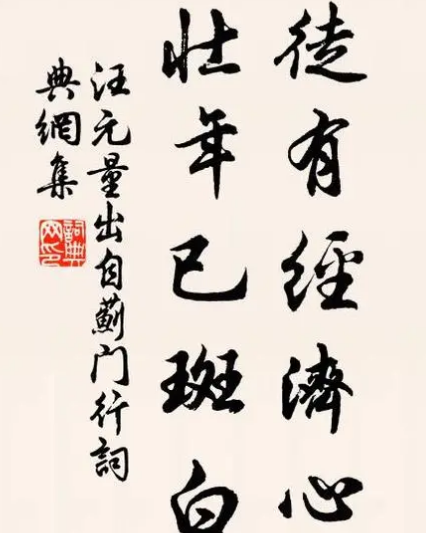 徒有經濟心
壯年已斑白
汪元量出自薊门行詞
典網集
詞典
网印